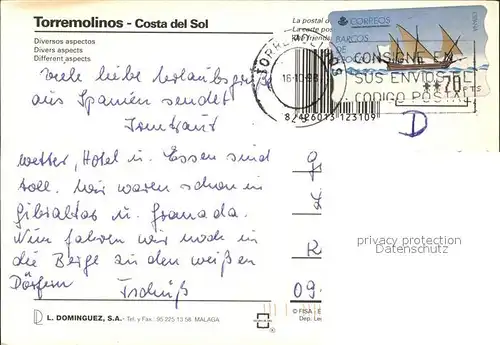 Torremolinos - Costa del Sol
Diversos aspectos
Divers aspects
Different aspects
viele liebe Urlaubsgrüße
aus Spanien sendet
Irmtraut
Wetter, Hotel u. Essen sind
toll. Wir waren schon in
Gibraltar u. Granada.
Nun fahren wir noch in
die Berge zu den weißen
Dörfern Tschüß
L. DOMINGUEZ, S.A. - Tel. y Fax.: 95 225 13 56 MALAGA
La postal
La carte pos
CORREOS
BARCOS
DE
16-10-98
CONSIGNE EN
SUS ENVIOS EL
CODIGO POSTAL
**70 PTS
8 426013 123109
D
privacy protection
Datenschutz
09
© FISA - E
Dep. Le